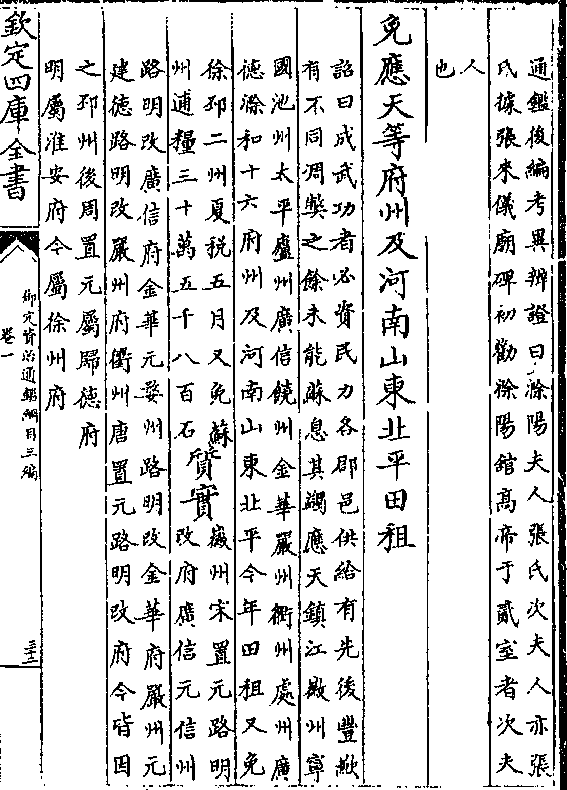 通鑑後編考異辨證曰滁陽夫人張氏次夫人亦張
氏據張来儀廟碑初勸滁陽舘髙帝于貳室者次夫
人
也
免應天等府州及河南山東北平田租
詔曰成武功者必資民力各郡邑供給有先後豐歉
有不同凋獘之餘未能蘇息其蠲應天鎮江徽州寧
國池州太平廬州廣信饒州金華嚴州衢州處州廣
徳滁和十六府州及河南山東北平今年田租又免
徐邳二州夏税五月又免蘇
州逋糧三十萬五千八百石
質實
徽州宋置元路明
改府廣信元信州
路明改廣信府金華元婺州路明改金華府嚴州元
建徳路明改嚴州府衢州唐置元路明改府今皆因
之邳州後周置元屬歸徳府
明屬淮安府今屬徐州府
欽定四庫全書
御定資治通鑑綱目三編
卷一
三十二